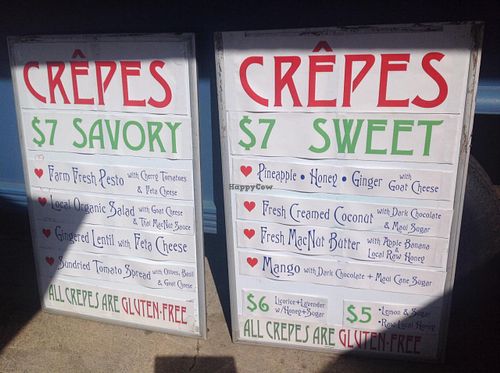 CRÊPES
$7 SAVORY
Farm Fresh Pesto with Cherry Tomatoes
& Feta Cheese
Local Organic Salad with Goat Cheese
& Thai MacNut Sauce
Gingered Lentil with Feta Cheese
Sundried Tomato Spread with Olives, Basil
& Goat Cheese
ALL CREPES ARE GLUTEN-FREE
CRÊPES
$7 SWEET
Pineapple • Honey • Ginger with
Goat Cheese
Fresh Creamed Coconut with Dark Chocolate
& Maui Sugar
Fresh MacNut Butter with Apple Banana
& Local Raw Honey
Mango with Dark Chocolate + Maui Cane Sugar
$6 Licorice+Lavender
w/Honey+Sugar
$5 • Lemon & Sugar
• Raw Local Honey
ALL CREPES ARE GLUTEN-FREE
HappyCow